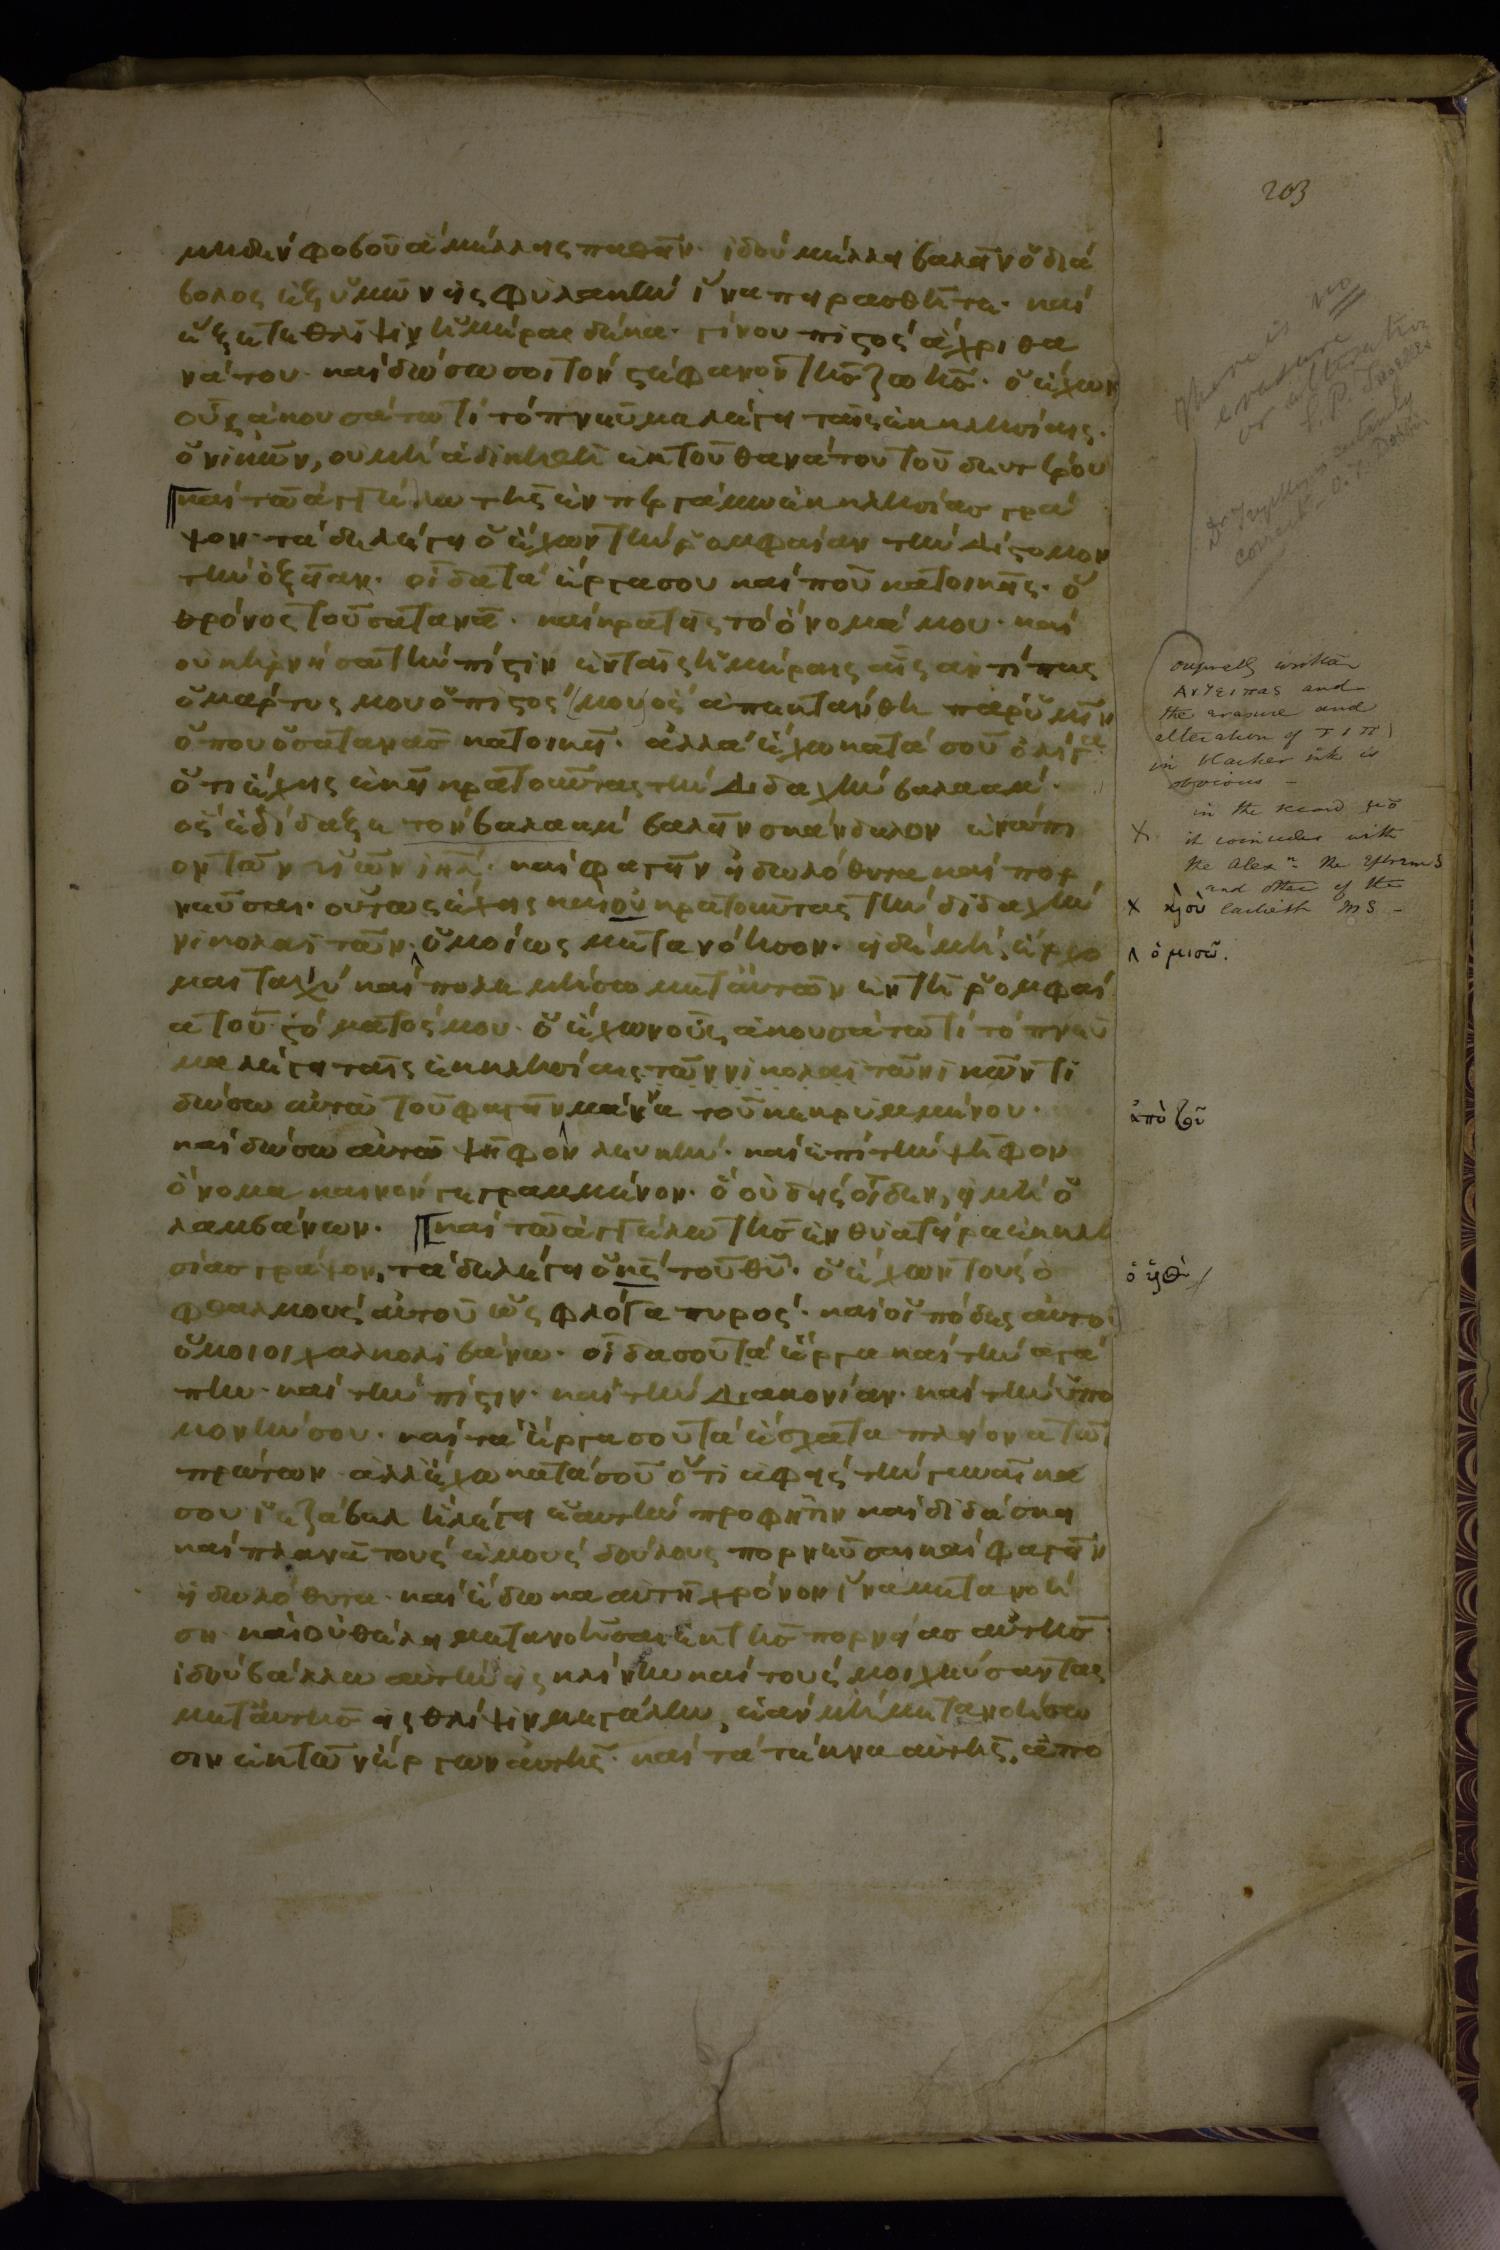 203
μηδὲν φοβοῦ ἃ μέλλεις παθεῖν· ἰδοὺ μέλλει βαλεῖν ὁ διά
βολος ἐξ ὑμῶν εἰς φυλακὴν ἵνα πειρασθῆτε· καὶ
ἕξετε θλίψιν ἡμέρας δέκα· γίνου πιστὸς ἄχρι θα
νάτου· καὶ δώσω σοι τὸν στέφανον τῆς ζωῆς· ὁ ἔχων
οὖς ἀκουσάτω τί τὸ πνεῦμα λέγει ταῖς ἐκκλησίαις·
ὁ νικῶν, οὐ μὴ ἀδικηθῆ ἐκ τοῦ θανάτου τοῦ δευτέρου
καὶ τῶ ἀγγέλω τῆς ἐν περγάμω ἐκκλησίας γρά
ψον· τάδε λέγει ὁ ἔχων τὴν ῥομφαίαν τὴν δίστομον
τὴν ὀξεῖαν· οἶδα τὰ ἔργα σου καὶ ποῦ κατοικεῖς· ὁ
θρόνος τοῦ σατανᾶ· καὶ κρατεῖς τὸ ὄνομά μου· καὶ
οὐκ ἠρνήσω τὴν πίστιν ἐν ταῖς ἡμέραις αἷς ἀντίπας
ὁ μάρτυς μου ὁ πιστός (μου) ὃς ἀπεκτάνθη παρ' ὑμῖν
ὅπου ὁ σατανᾶς κατοικεῖ· ἀλλὰ ἔχω κατὰ σοῦ ὀλίγα
ὅτι ἔχεις ἐκεῖ κρατοῦντας τὴν διδαχὴν βαλαάμ·
ὃς ἐδίδαξε τὸν βαλαὰμ βαλεῖν σκάνδαλον ἐνώπι
ον τῶν υἱῶν ιηλ· καὶ φαγεῖν εἰδωλόθυτα καὶ πορ
νεῦσαι· οὕτως ἔχεις καὶ σὺ κρατοῦντας τὴν διδαχὴν
νικολαϊτῶν· ὁμοίως μετανόησον· εἰ δὲ μή, ἔρχο
μαι ταχὺ καὶ πολεμήσω μετ' αὐτῶν ἐν τῆ ῥομφαί
α τοῦ στόματός μου· ὁ ἔχων οὖς ἀκουσάτω τί τὸ πνεῦ
μα λέγει ταῖς ἐκκλησίαις τῶν νικολαϊτῶν νικῶντι
δώσω αὐτῶ τοῦ φαγεῖν μάννα τοῦ κεκρυμμένου·
καὶ δώσω αὐτῶ ψῆφον λευκήν· καὶ ἐπὶ τὴν ψῆφον
ὄνομα καινὸν γεγραμμένον· ὃ οὐδεὶς οἶδεν, εἰ μὴ ὁ
λαμβάνων· καὶ τῶ ἀγγέλω τῆς ἐν θυατείρα ἐκκλη
σίας γράψον, τάδε λέγει ὁ κς τοῦ θυ· ὁ ἔχων τοὺς ὀ
φθαλμοὺς αὐτοῦ ὡς φλόγα πυρός· καὶ οἱ πόδες αὐτοῦ
ὅμοιοι χαλκολιβάνω· οἶδά σου τὰ ἔργα καὶ τὴν ἀγά
πην· καὶ τὴν πίστιν· καὶ τὴν διακονίαν· καὶ τὴν ὑπο
μονήν σου· καὶ τὰ ἔργα σου τὰ ἔσχατα πλείονα τῶν
πρώτων· ἀλλ' ἔχω κατὰ σοῦ ὅτι ἀφεῖς τὴν γυναῖκα
σου ἰεζάβελ ἣ λέγει ἑαυτὴν προφῆτιν καὶ διδάσκει
καὶ πλανᾶ τοὺς ἐμοὺς δούλους πορνεῦσαι καὶ φαγεῖν
εἰδωλόθυτα· καὶ ἔδωκα αὐτῆ χρόνον ἵνα μετανοή
ση· καὶ οὐ θέλει μετανοῆσαι ἐκ τῆς πορνείας αὐτῆς
ἰδοὺ βάλλω αὐτὴν εἰς κλίνην καὶ τοὺς μοιχεύσαντας
μετ' αὐτῆς εἰς θλίψιν μεγάλην, ἐὰν μὴ μετανοήσω
σιν ἐκ τῶν ἔργων αὐτῆς· καὶ τὰ τέκνα αὐτῆς. ἀπο
There is no
erasure
or alteration
S. P. Tregelles
Dr Tregelles is certainly
correct - O. T. Dobbin
originally written
Αντειπας and
the erasure and
alteration of
in blacker ink is
obvious -
in the second
X it coincides with
the Alexn. the Ephrem
and other of the
X earliest MS -
ὁ μισῶ.
ἀπὸ